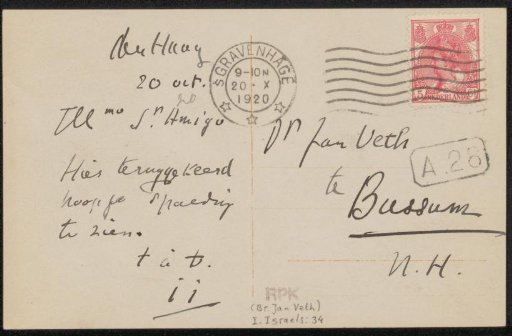 den Haag
20 oct.
20
Ill mo Sr. Amigo
Hier teruggekeerd
hoop je spoedig
te zien.
t à t.
ii
'S GRAVENHAGE
9-10 N
20 X
1920
Dr Jan Veth
te
Bussum
N.H.
A.28
RPK
(Br. Jan Veth)
I. Israels: 34